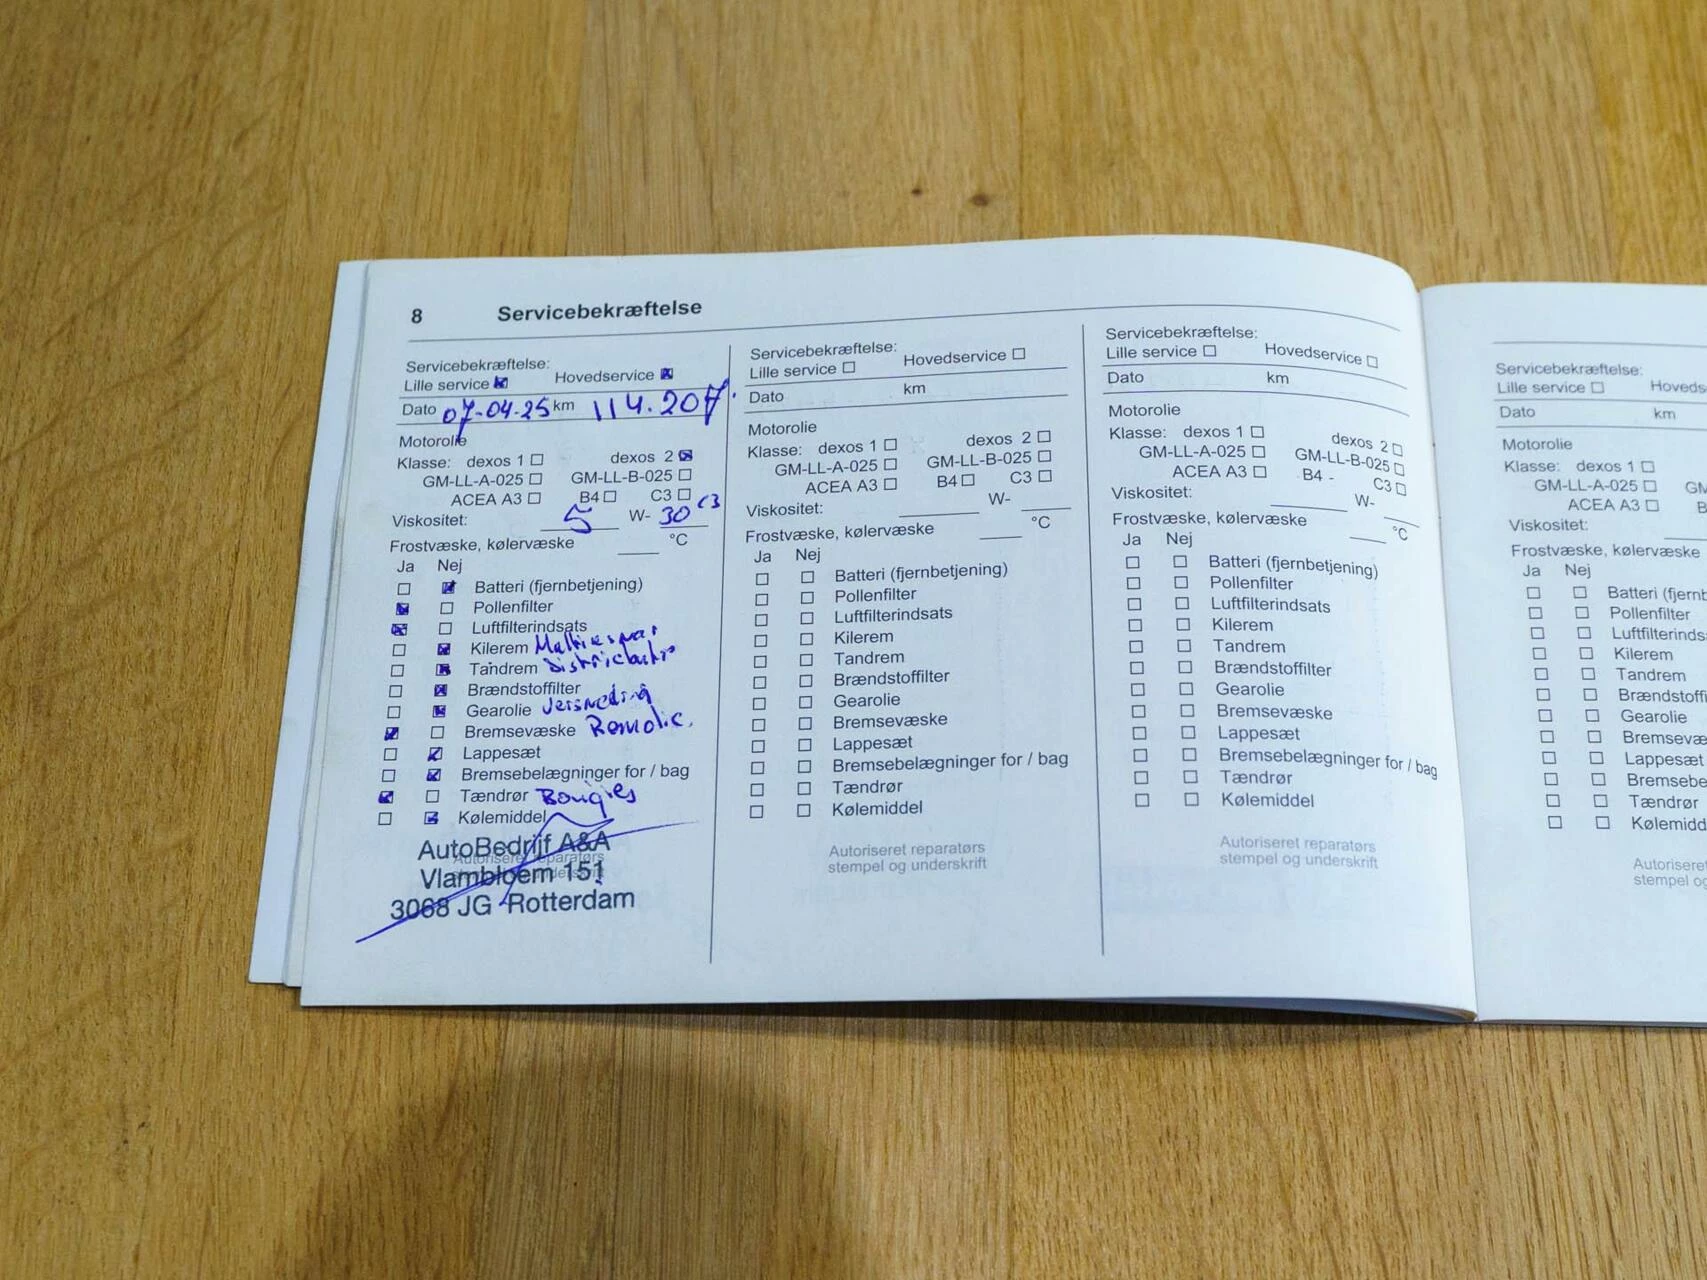 8 Servicebekræftelse
Servicebekræftelse:
Lille service Hovedservice
Dato 07-04-25 km 114.207.
Motorolie
Klasse: dexos 1 dexos 2
GM-LL-A-025 GM-LL-B-025
ACEA A3 B4 C3
Viskositet: 5 W- 30 C3
Frostvæske, kølervæske °C
Ja Nej
Batteri (fjernbetjening)
Pollenfilter
Luftfilterindsats
Kilerem
Tandrem
Brændstoffilter
Gearolie
Bremsevæske Remolie.
Lappesæt
Bremsebelægninger for / bag
Tændrør Bougies
Kølemiddel
Autoriseret reparatørs
AutoBedrijf A&A
Vlambloem 151
3068 JG Rotterdam
Servicebekræftelse:
Lille service Hovedservice
Dato km
Motorolie
Klasse: dexos 1 dexos 2
GM-LL-A-025 GM-LL-B-025
ACEA A3 B4 C3
Viskositet: W-
Frostvæske, kølervæske °C
Ja Nej
Batteri (fjernbetjening)
Pollenfilter
Luftfilterindsats
Kilerem
Tandrem
Brændstoffilter
Gearolie
Bremsevæske
Lappesæt
Bremsebelægninger for / bag
Tændrør
Kølemiddel
Autoriseret reparatørs
stempel og underskrift
Servicebekræftelse:
Lille service Hovedservice
Dato km
Motorolie
Klasse: dexos 1 dexos 2
GM-LL-A-025 GM-LL-B-025
ACEA A3 B4 - C3
Viskositet: W-
Frostvæske, kølervæske °C
Ja Nej
Batteri (fjernbetjening)
Pollenfilter
Luftfilterindsats
Kilerem
Tandrem
Brændstoffilter
Gearolie
Bremsevæske
Lappesæt
Bremsebelægninger for / bag
Tændrør
Kølemiddel
Autoriseret reparatørs
stempel og underskrift
Servicebekræftelse:
Lille service Hoveds
Dato km
Motorolie
Klasse: dexos 1
GM-LL-A-025 GM
ACEA A3 B
Viskositet:
Frostvæske, kølervæske
Ja Nej
Batteri (fjernb
Pollenfilter
Luftfilterinds
Kilerem
Tandrem
Brændstoff
Gearolie
Bremsevæ
Lappesæt
Bremsebe
Tændrør
Kølemidd
Autoriseret
stempel og